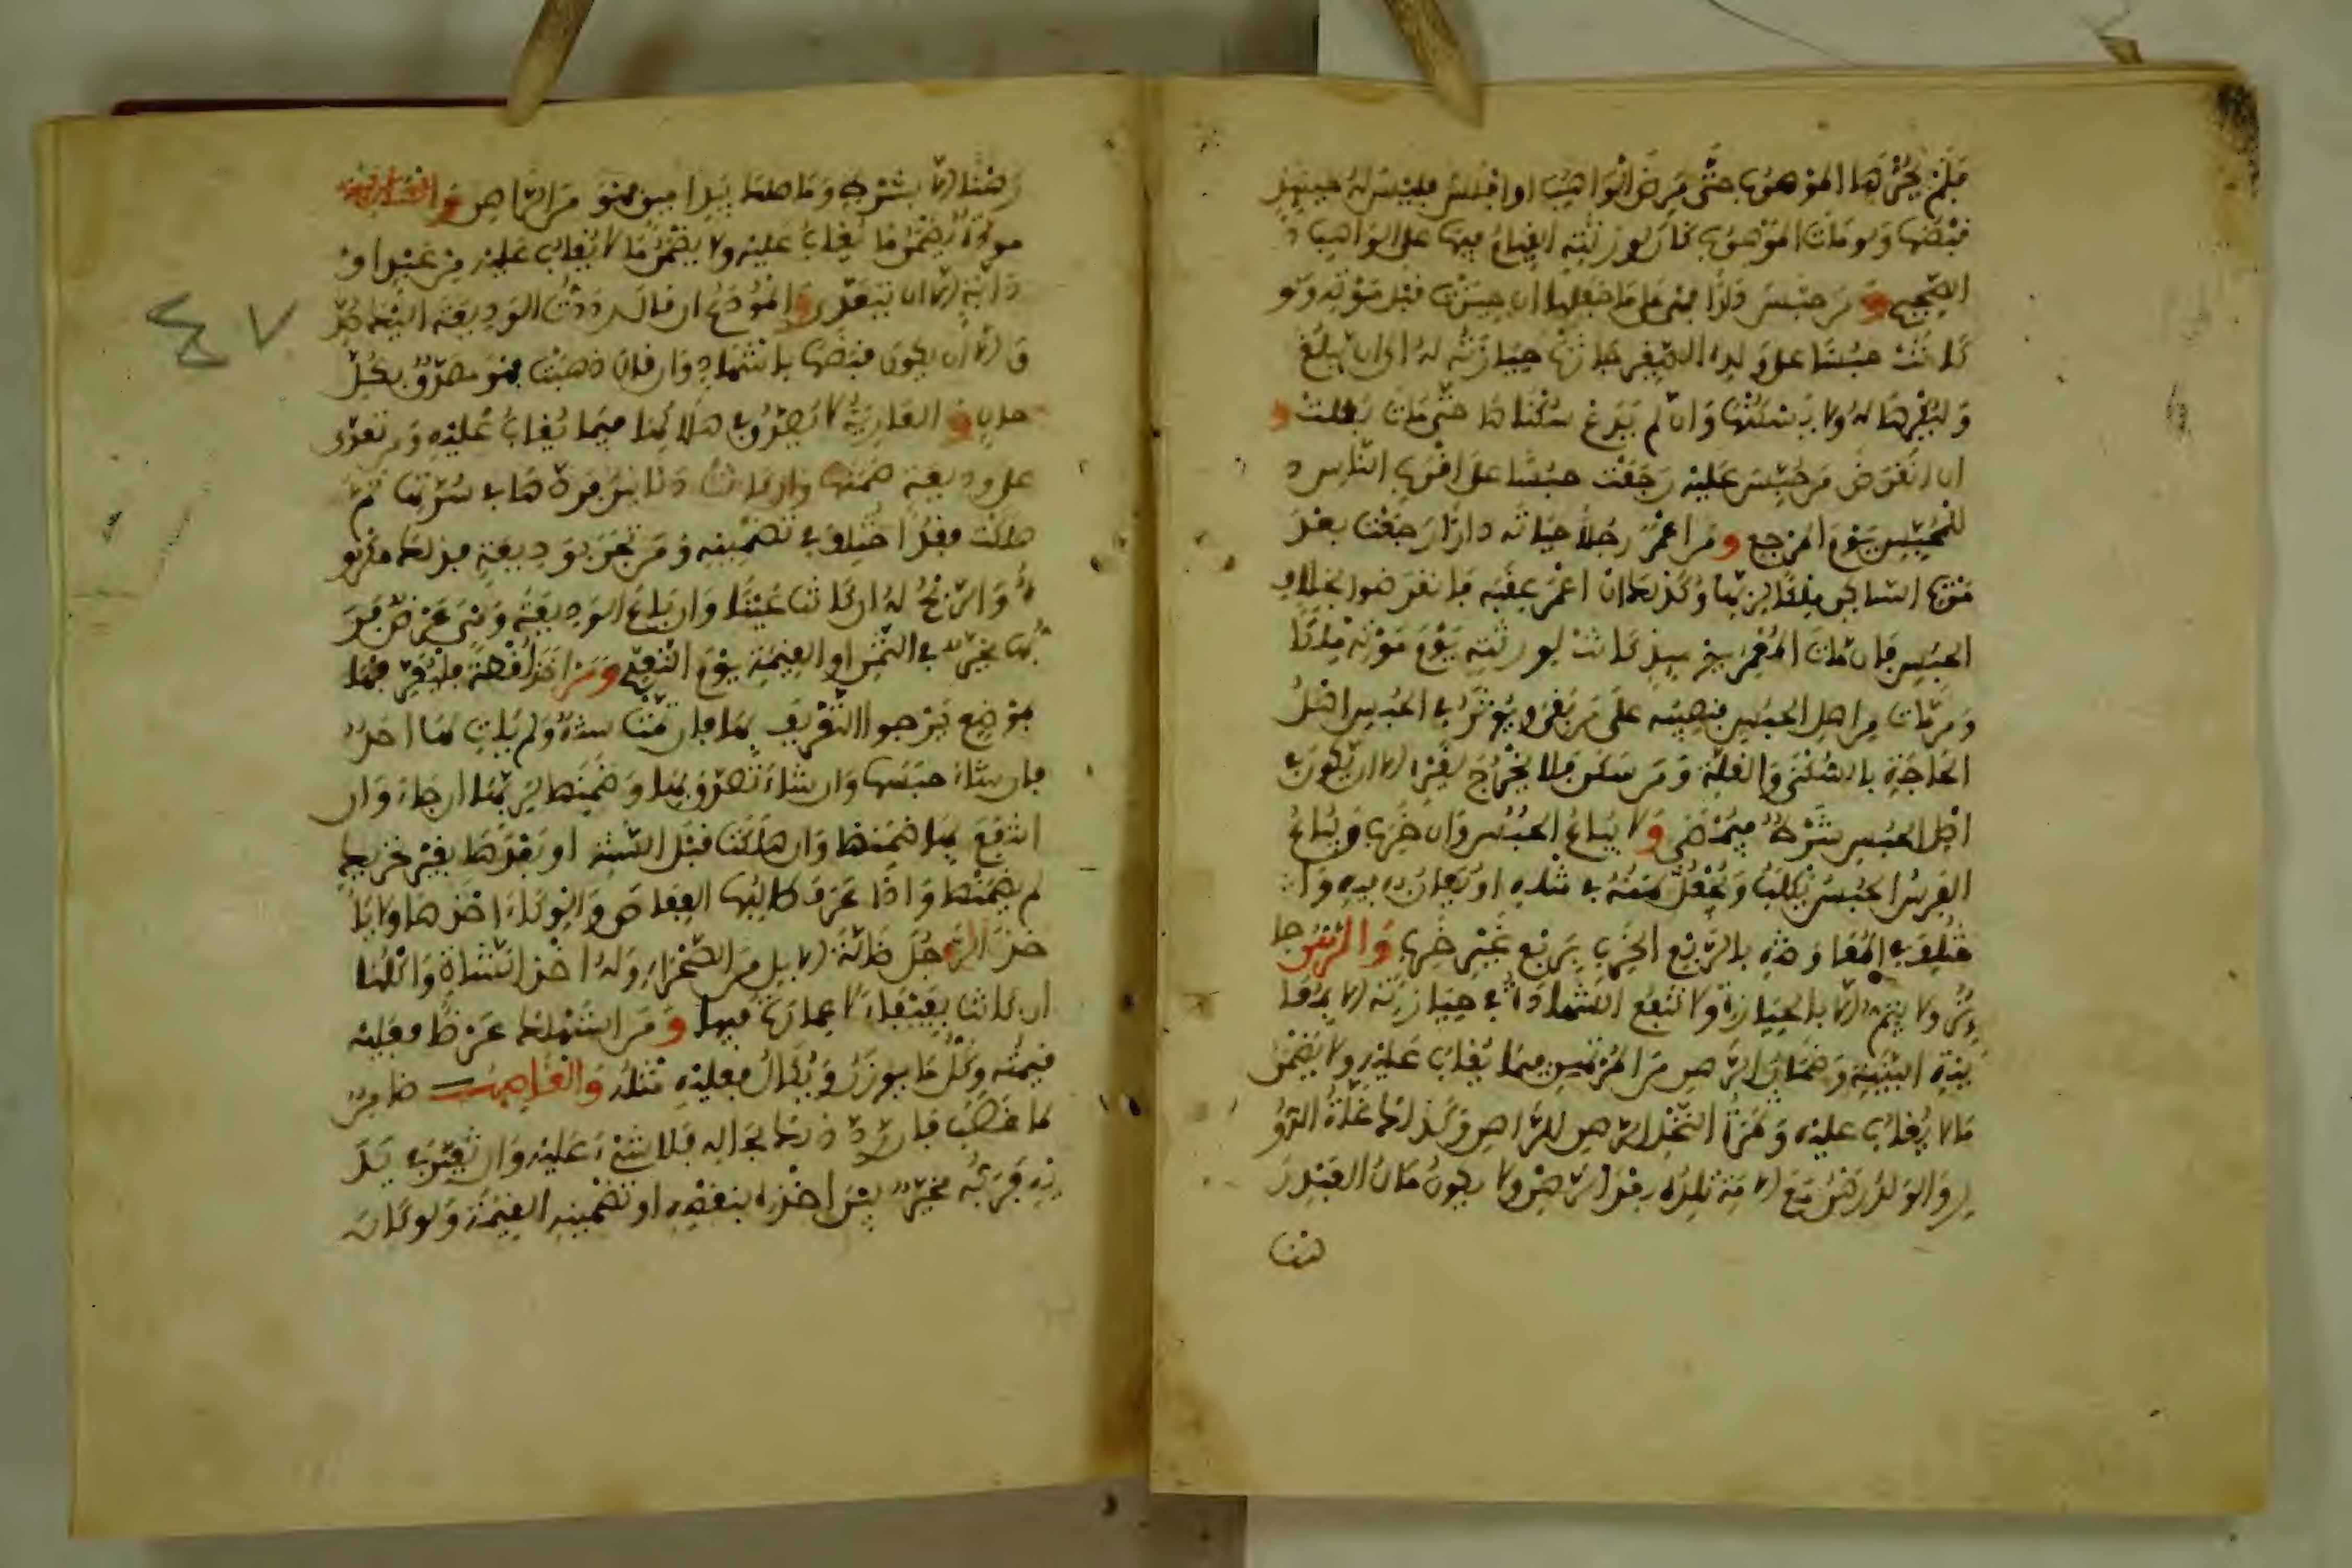 فلم يحزها الموهوب حتى مرض الواهب او افلس فليس له حينئذ
قبضها ولو مات الموهوب كان لورثته القيام فيها على الواهب
الصحيح ومن حبس دارا فهي على ما جعلها ان حيزت قبل موته ولو
كانت حبسا على ولده الصغير جازت حيازته له الى ان يبلغ
وليكرها له ولا يسكنها وان لم يدع سكناها حتى مات بطلت و
ان انقرض من حبس عليه رجعت حبسا على اقرب الناس
للمحبس يوم المرجع ومن اعمر رجلا حياته دارا رجعت بعد
موت الساكن ملكا لربها وكذلك ان اعمر عقبه فانقرضوا بخلاف
الحبس فان مات المعمر يومئذ كانت لورثته يوم موته ملكا
ومن مات من اهل الحبس فنصيبه على من بقي ويوثر في الحبس اهل
الحاجة بالسكنى والغلة ومن سكن فلا يخرج لغيره الا ان يكون في
اصل الحبس شرط فيمضى ولا يباع الحبس وان خرب ويباع
الفرس الحبس يكلب ويجعل ثمنه في مثله او يعان به فيه وا
ختلف في المعاوضة بالربع الخرب بربع غير خرب والرهن جا
ئز ولا يتم الا بالحيازة ولا تنفع الشهادة في حيازته الا بمعا
ينة البينة وضمان الرهن من المرتهن فيما يغاب عليه ولا يضمن
ما لا يغاب عليه وثمرة النخل الرهن للراهن وكذلك غلة الدو
ر والولد رهن مع الامة تلده بعد الرهن ولا يكون مال العبد ر
هنا
رهنا الا بشرط وما هلك بيد امين فهو من الراهن والعارية
موداة يضمن ما يغاب عليه ولا يضمن ما لا يغاب عليه من عبد او
دابة الا ان يتعدى والمودع ان قال رددت الوديعة اليك صد
ق الا ان يكون قبضها باشهاد وان قال ذهبت فهو مصدق بكل
حال والعارية لا يصدق في هلاكها فيما يغاب عليه ومن تعدى
على وديعة ضمنها وان كانت دنانير فردها في صرتها ثم
هلكت فقد اختلف في تضمينه ومن تجر بوديعة فذلك مكرو
ه والربح له ان كانت عينا وان باع الوديعة وهي عرض فر
بها مخير في الثمن او القيمة يوم التعدي ومن وجد لقطة فليعرفها
بموضع يرجوا التعريف بها فان تمت سنة ولم يات لها احد
فان شاء حبسها وان شاء تصدق بها وضمنها لربها ان جاء وان
انتفع بها ضمنها وان هلكت قبل السنة او بعدها بغير تحريك
لم يضمنها واذا عرف طالبها العفاص والوكاء اخذها ولا يا
خذ الرجل ضالة الابل من الصحراء وله اخذ الشاة واكلها
ان كانت بفيفاء لا عمارة فيها ومن استهلك عرضا فعليه
قيمته وكل ما يوزن ويكال فعليه مثله والغاصب ضامن
لما غصب فان رد ذلك بحاله فلا شيء عليه وان تغير في يد
ه فربه مخير بين اخذه بنقصه او تضمينه القيمة ولو كان
٤٧